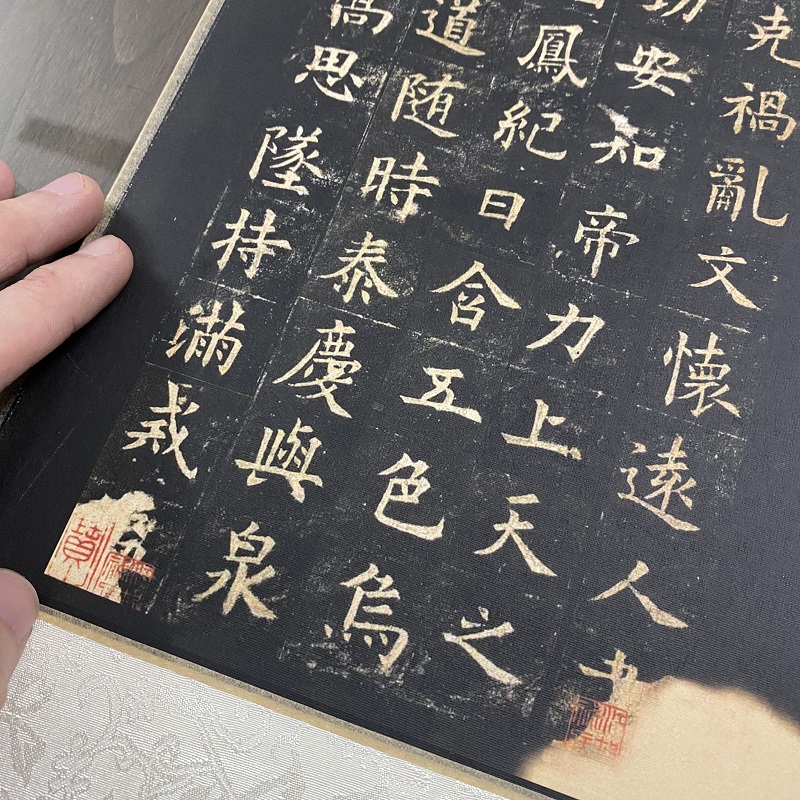 克禍亂文懷遠人
功安知帝力上天之
鳳紀日含五色烏
道随時泰慶與泉
高思墜持滿戒